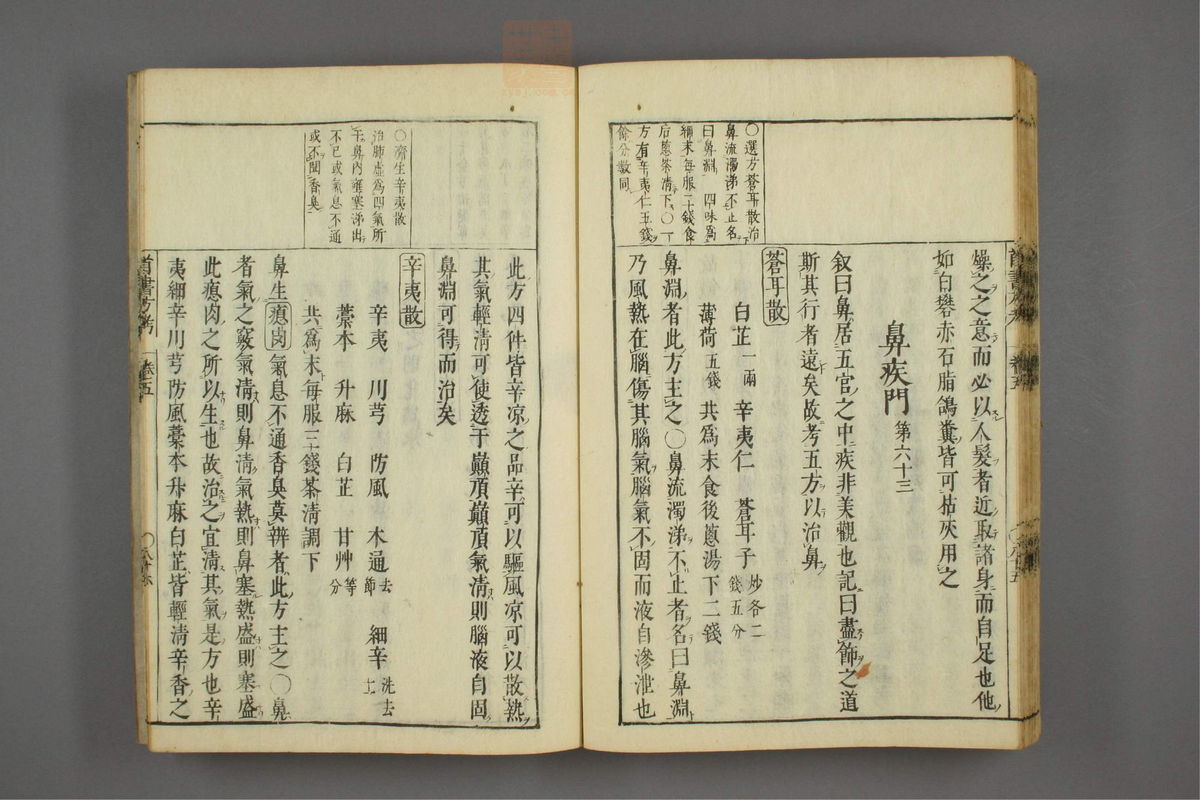 燥之之意而必以人髮者近取諸身而自足也他
如白礬赤石脂鴿糞皆可枯灰用之
鼻疾門 第六十三
叙曰鼻居五官之中疾非美觀也記曰盡飾之道
斯其行者遠矣故考五方以治鼻
蒼耳散
白芷一兩 辛夷仁 蒼耳子炒各二錢五分
薄荷五錢 共爲末食後蔥湯下二錢
鼻淵者此方主之〇鼻流濁涕不止者名曰鼻淵
乃風熱在腦傷其腦氣腦氣不固而液自滲泄也
〇選方蒼耳散治
鼻流濁涕不止名
曰鼻淵 四味爲
細末每服二錢食
后蔥茶清下〇一
方有辛夷仁五錢
餘分數同
此方四件皆辛凉之品辛可以驅風凉可以散熱
其氣輕清可使透于巔頂巔頂氣清則腦液自固
鼻淵可得而治矣
辛夷散
辛夷 川芎 防風 木通去節 細辛洗去土
藁本 升麻 白芷 甘艸等分
共爲末每服三錢茶清調下
鼻生瘜肉氣息不通香臭莫辨者此方主之〇鼻
者氣之竅氣清則鼻清氣熱則鼻塞熱盛則塞盛
此瘜肉之所以生也故治之宜清其氣是方也辛
夷細辛川芎防風藁本升麻白芷皆輕清辛香之
〇濟生辛夷散
治肺虛爲四氣所
干鼻内壅塞涕出
不已或氣息不通
或不聞香臭
首書方考
卷五